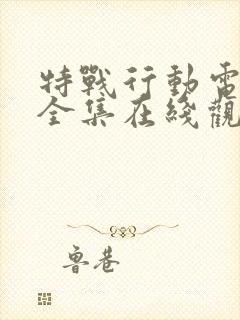 特戰行動電
全集在綫觀
魯巷